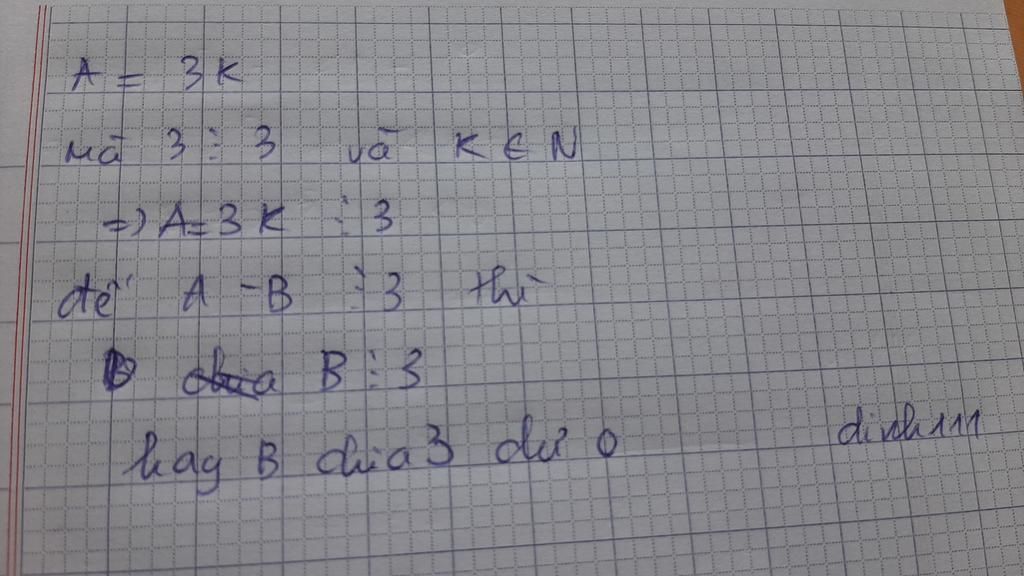 A = 3K
mà 3 ⋮ 3 và K ∈ N
=> A = 3K ⋮ 3
để A - B ⋮ 3 thì
B ⋮ 3
hay B chia 3 dư 0
dinh111